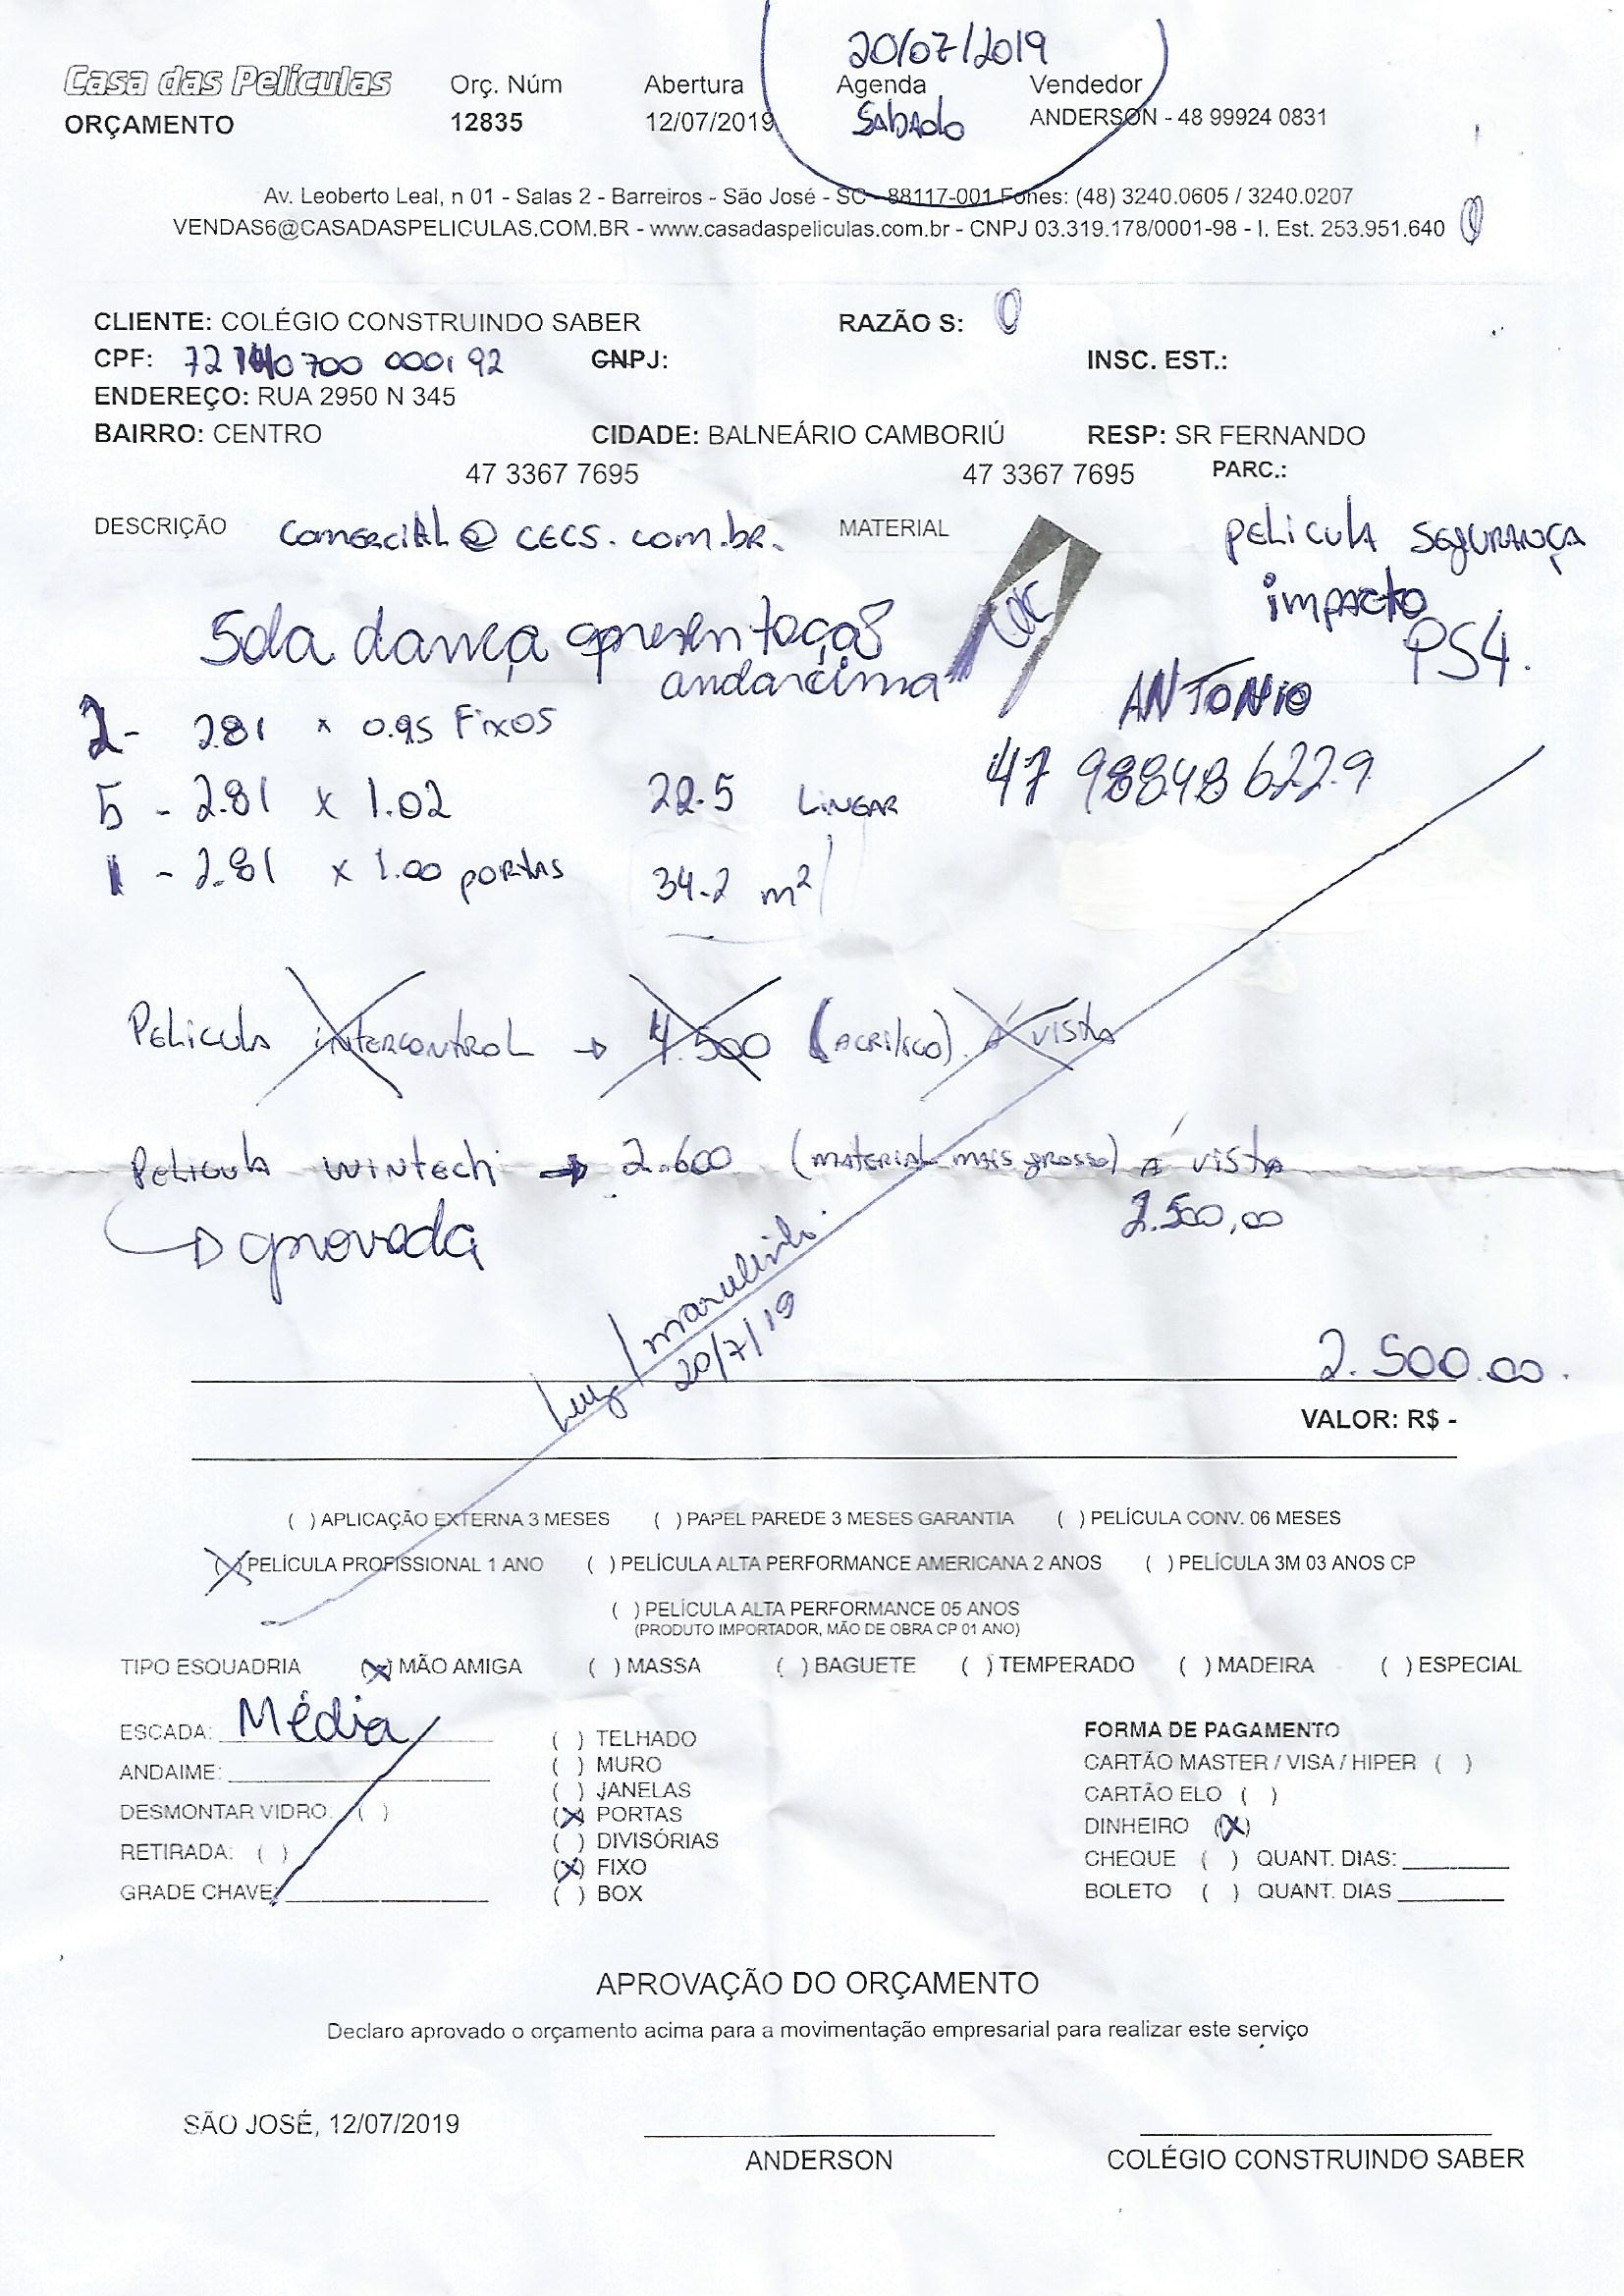 20/07/2019
Casa das Películas Orç. Núm Abertura Agenda Vendedor
ORÇAMENTO 12835 12/07/2019 Sabado ANDERSON - 48 99924 0831
Av. Leoberto Leal, n 01 - Salas 2 - Barreiros - São José - SC - 88117-001 Fones: (48) 3240.0605 / 3240.0207
VENDAS6@CASADASPELICULAS.COM.BR - www.casadaspeliculas.com.br - CNPJ 03.319.178/0001-98 - I. Est. 253.951.640
CLIENTE: COLÉGIO CONSTRUINDO SABER RAZÃO S:
CPF: 72 140 700 0001 92 CNPJ: INSC. EST.:
ENDEREÇO: RUA 2950 N 345
BAIRRO: CENTRO CIDADE: BALNEÁRIO CAMBORIÚ RESP: SR FERNANDO
47 3367 7695 47 3367 7695 PARC.:
DESCRIÇÃO comercial@cecs.com.br. MATERIAL película segurança
impacto
Sala dança apresentação PS4.
andar cima ANTONIO
2- 2.81 x 0.95 Fixos
47 98848 6229
5 - 2.81 x 1.02 22.5 Linear
1 - 2.81 x 1.00 portas 34.2 m²
Pelicula intercontrol → 4.500 (acrilico) Á vista
Pelicula wintech → 2.600 (material mais grosso) Á vista
2.500,00
→ aprovada
Luiz
20/7/19
2.500.00.
VALOR: R$ -
( ) APLICAÇÃO EXTERNA 3 MESES ( ) PAPEL PAREDE 3 MESES GARANTIA ( ) PELÍCULA CONV. 06 MESES
(X) PELÍCULA PROFISSIONAL 1 ANO ( ) PELÍCULA ALTA PERFORMANCE AMERICANA 2 ANOS ( ) PELÍCULA 3M 03 ANOS CP
( ) PELÍCULA ALTA PERFORMANCE 05 ANOS
(PRODUTO IMPORTADOR, MÃO DE OBRA CP 01 ANO)
TIPO ESQUADRIA (X) MÃO AMIGA ( ) MASSA ( ) BAGUETE ( ) TEMPERADO ( ) MADEIRA ( ) ESPECIAL
ESCADA: Média
ANDAIME:
DESMONTAR VIDRO: ( )
RETIRADA: ( )
GRADE CHAVE:
( ) TELHADO
( ) MURO
( ) JANELAS
(X) PORTAS
( ) DIVISÓRIAS
(X) FIXO
( ) BOX
FORMA DE PAGAMENTO
CARTÃO MASTER / VISA / HIPER ( )
CARTÃO ELO ( )
DINHEIRO (X)
CHEQUE ( ) QUANT. DIAS:
BOLETO ( ) QUANT. DIAS
APROVAÇÃO DO ORÇAMENTO
Declaro aprovado o orçamento acima para a movimentação empresarial para realizar este serviço
SÃO JOSÉ, 12/07/2019
ANDERSON COLÉGIO CONSTRUINDO SABER